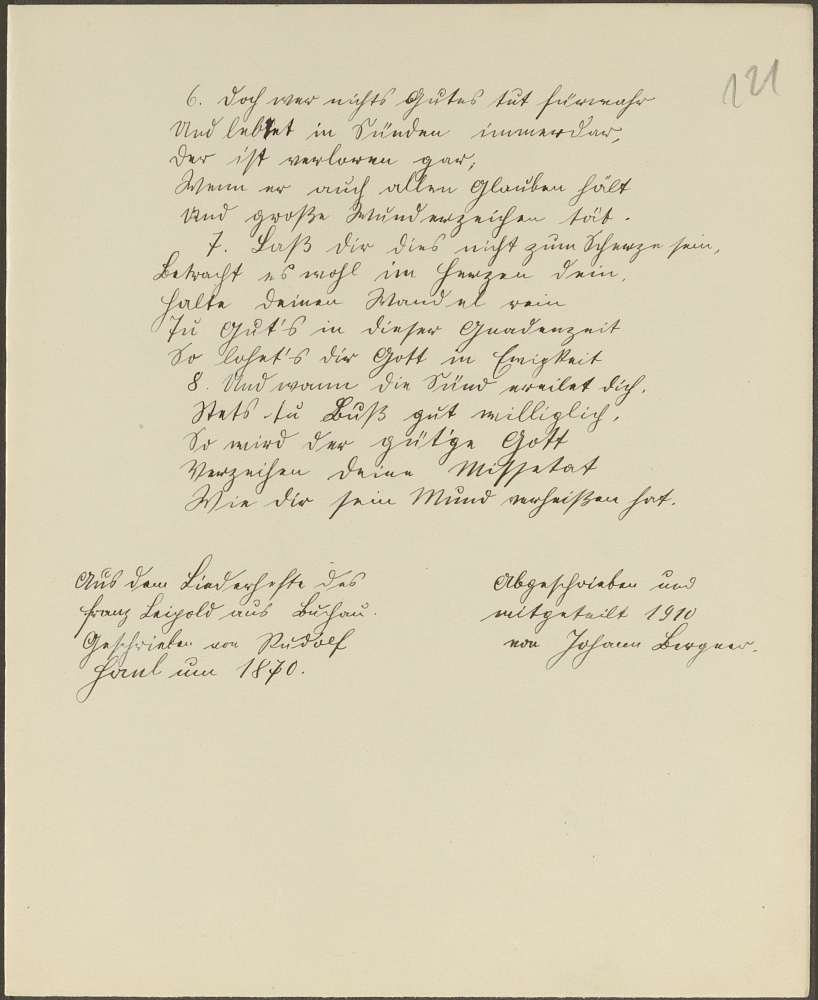 121
6. Doch wer nichts Gutes tut fürwahr
Und lebet in Sünden immerdar,
Der ist verloren gar;
Wenn er auch allen Glauben hält
Und große Wunderzeichen tät.
7. Laß dir dies nicht zum Scherze sein,
Betracht es wohl im Herzen dein,
Halte deinen Wandel rein
Tu Gut's in dieser Gnadenzeit
So lohnt's dir Gott in Ewigkeit
8. Und wann die Sünd ereilet dich,
Stets tu Buß gut williglich,
So wird der güt'ge Gott
Verzeihen deine Missetat
Wie dir sein Mund verheißen hat.
Aus dem Liederhefte des
Franz Leipold aus Buchau.
Geschrieben von Rudolf
um 1870.
Abgeschrieben und
mitgeteilt 1910
von Johann Bergner.